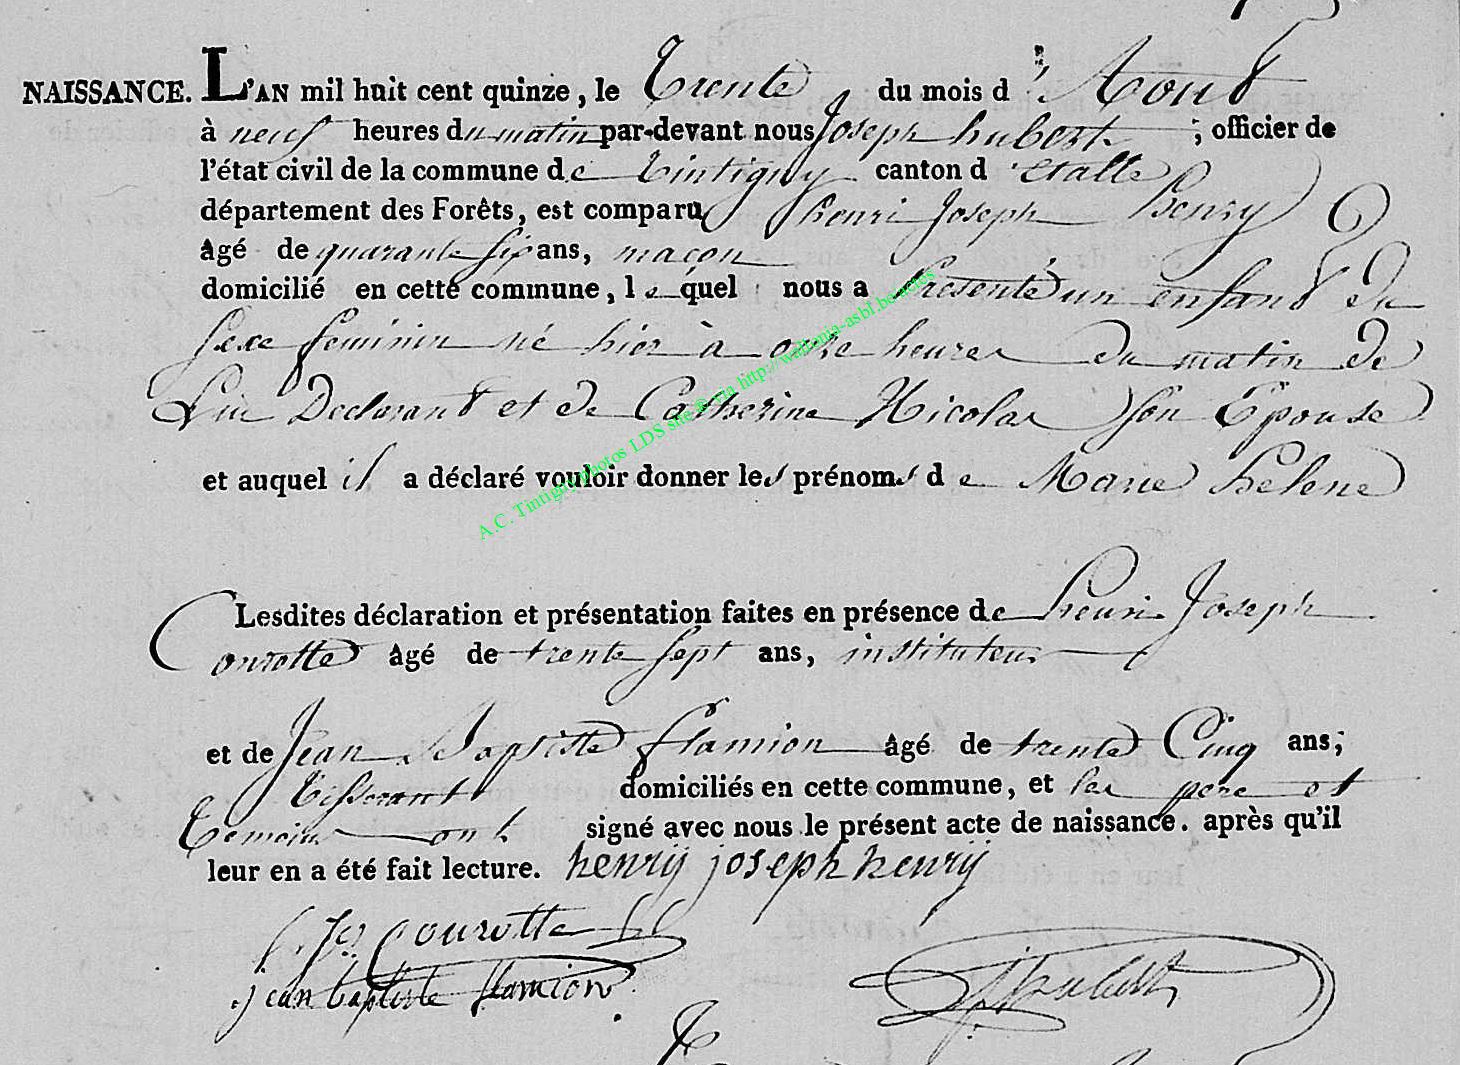 NAISSANCE. L'AN mil huit cent quinze, le Trente du mois d'Aout
à neuf heures du matin par-devant nous Joseph hubert ; officier de
l'état civil de la commune de Tintigny canton d'Etalle
département des Forêts, est comparu henri Joseph henry
âgé de quarante six ans, maçon
domicilié en cette commune, lequel nous a Présenté un enfant du
sexe feminin né hier à onze heures du matin de
Lui Declarant et de Catherine Nicolas son Epouse
et auquel il a déclaré vouloir donner les prénoms de Marie helene
Lesdites déclaration et présentation faites en présence de henri Joseph
Courotte âgé de trente sept ans, instituteur
et de Jean Baptiste flamion âgé de trente Cinq ans,
Tisserant domiciliés en cette commune, et les pere et
Temoins ont signé avec nous le présent acte de naissance. après qu'il
leur en a été fait lecture. henrij joseph henrij
courotte
jean baptiste flamion
JHubert
A.C. Tintigny photos LDS site ® via http://wallonia-asbl.be/actes